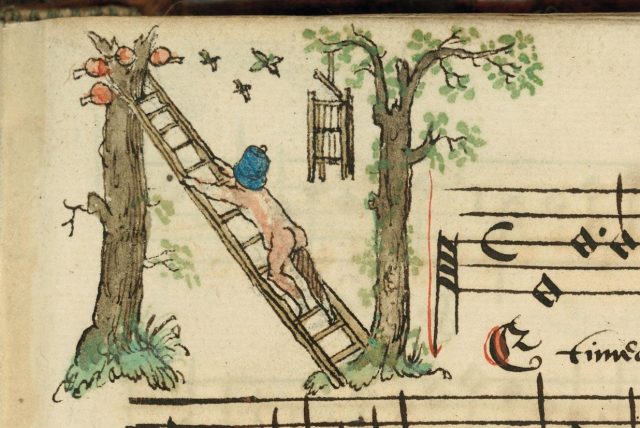 N
Et timea